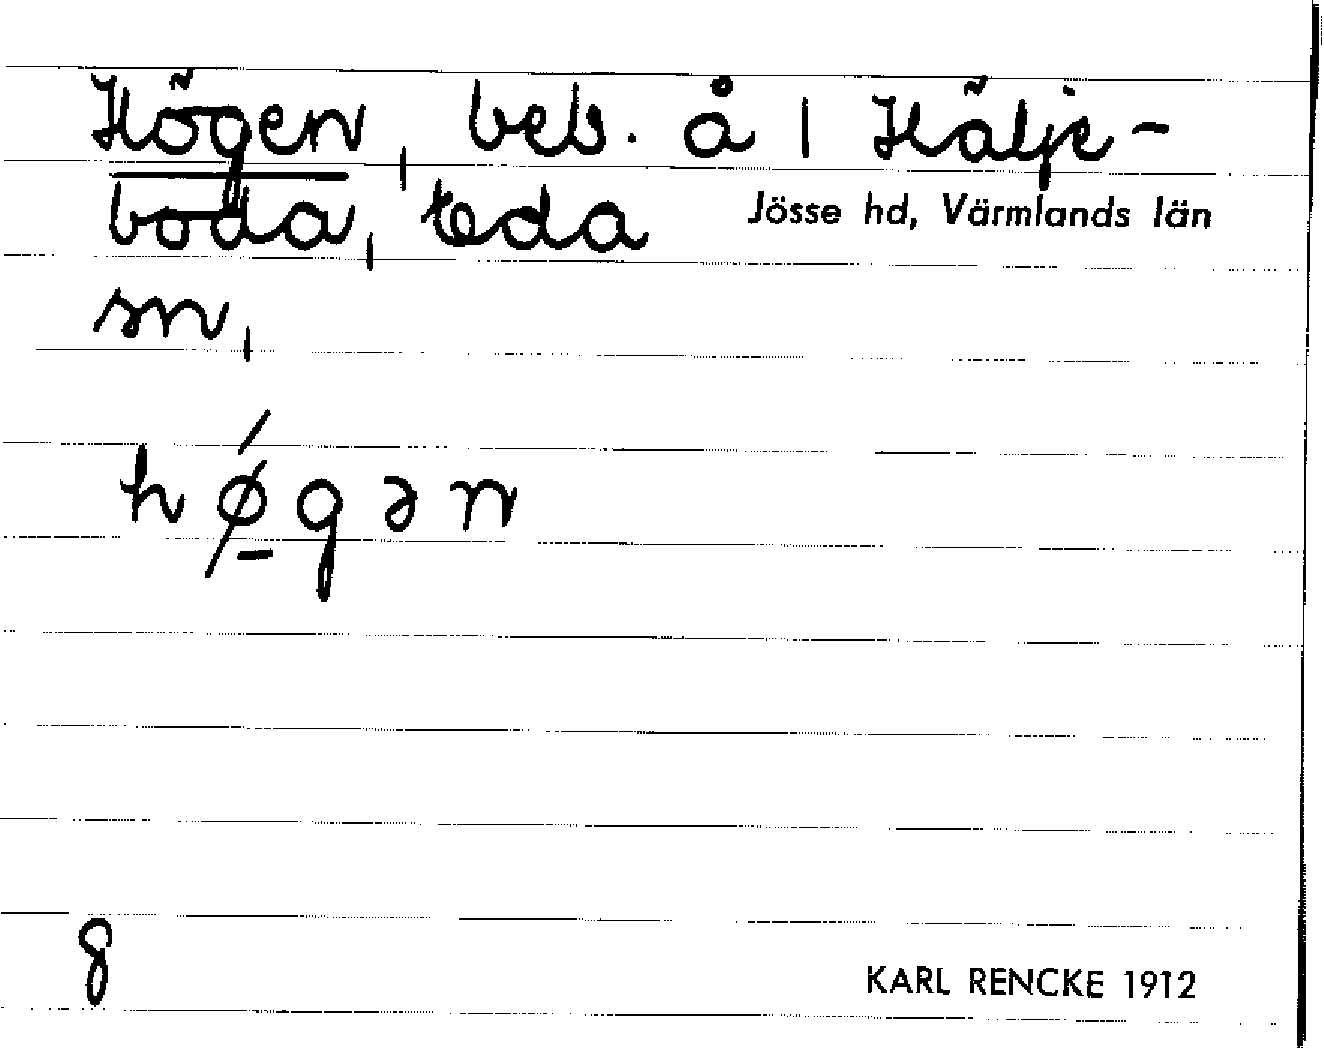 Högen, beb. å 1 Hälje-
boda, Eda Jösse hd, Värmlands län
sn,
hǿ̱gən
8
KARL RENCKE 1912